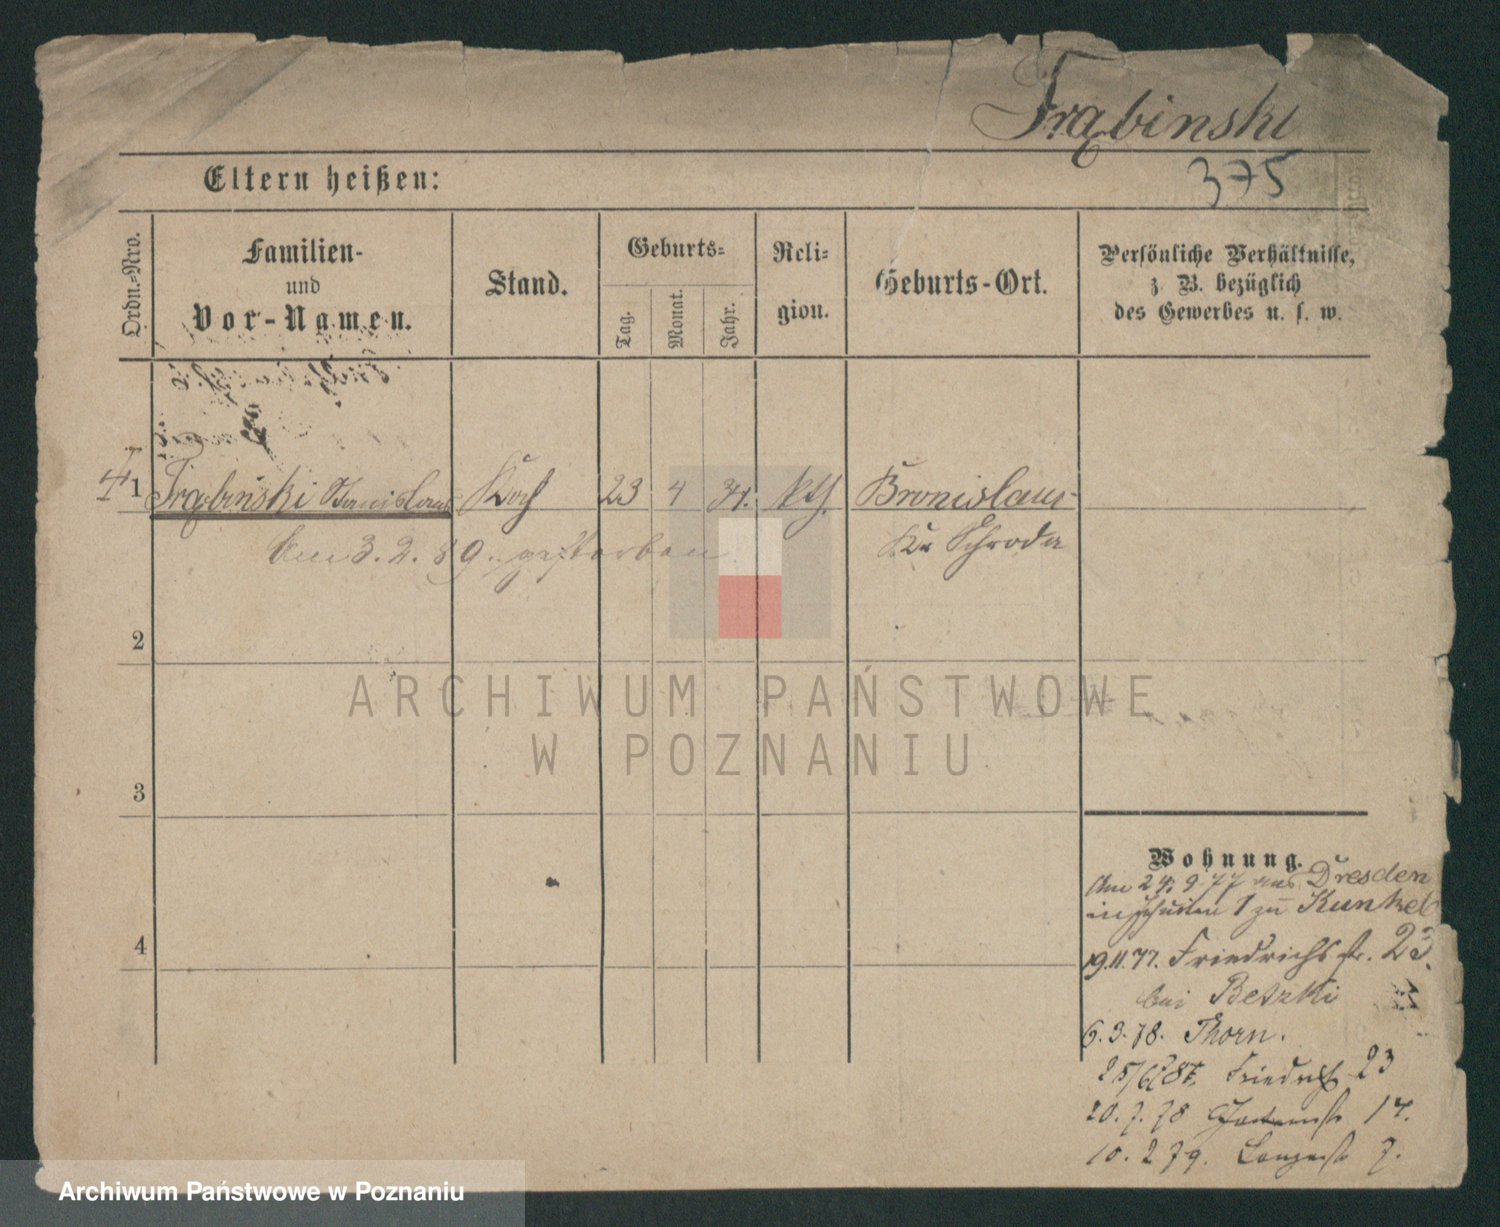 Frąbinski
375
Eltern heißen:
Ordn.-Nro.
Familien-
und
Vor-Namen.
Stand.
Geburts-
Tag.
Monat.
Jahr.
Reli-
gion.
Geburts-Ort.
Persönliche Verhältnisse,
z. B. bezüglich
des Gewerbes u. s. w.
1 Frąbinski Stanislaus Koch 23 4 31. kth. Bronislaus-
Kr Schroda
Am 3. 2. 89. gestorben
2
3
4
Wohnung.
Am 24. 9 77 aus Dresden
in 1 zu Kunkel
19.11.77. Friedrichstr. 23.
bei Betzki
6.3.78. Thorn.
Friedrichst 23
20. 7. 78 17.
10. 2 79. Langestr 7.
ARCHIWUM PAŃSTWOWE
W POZNANIU
Archiwum Państwowe w Poznaniu